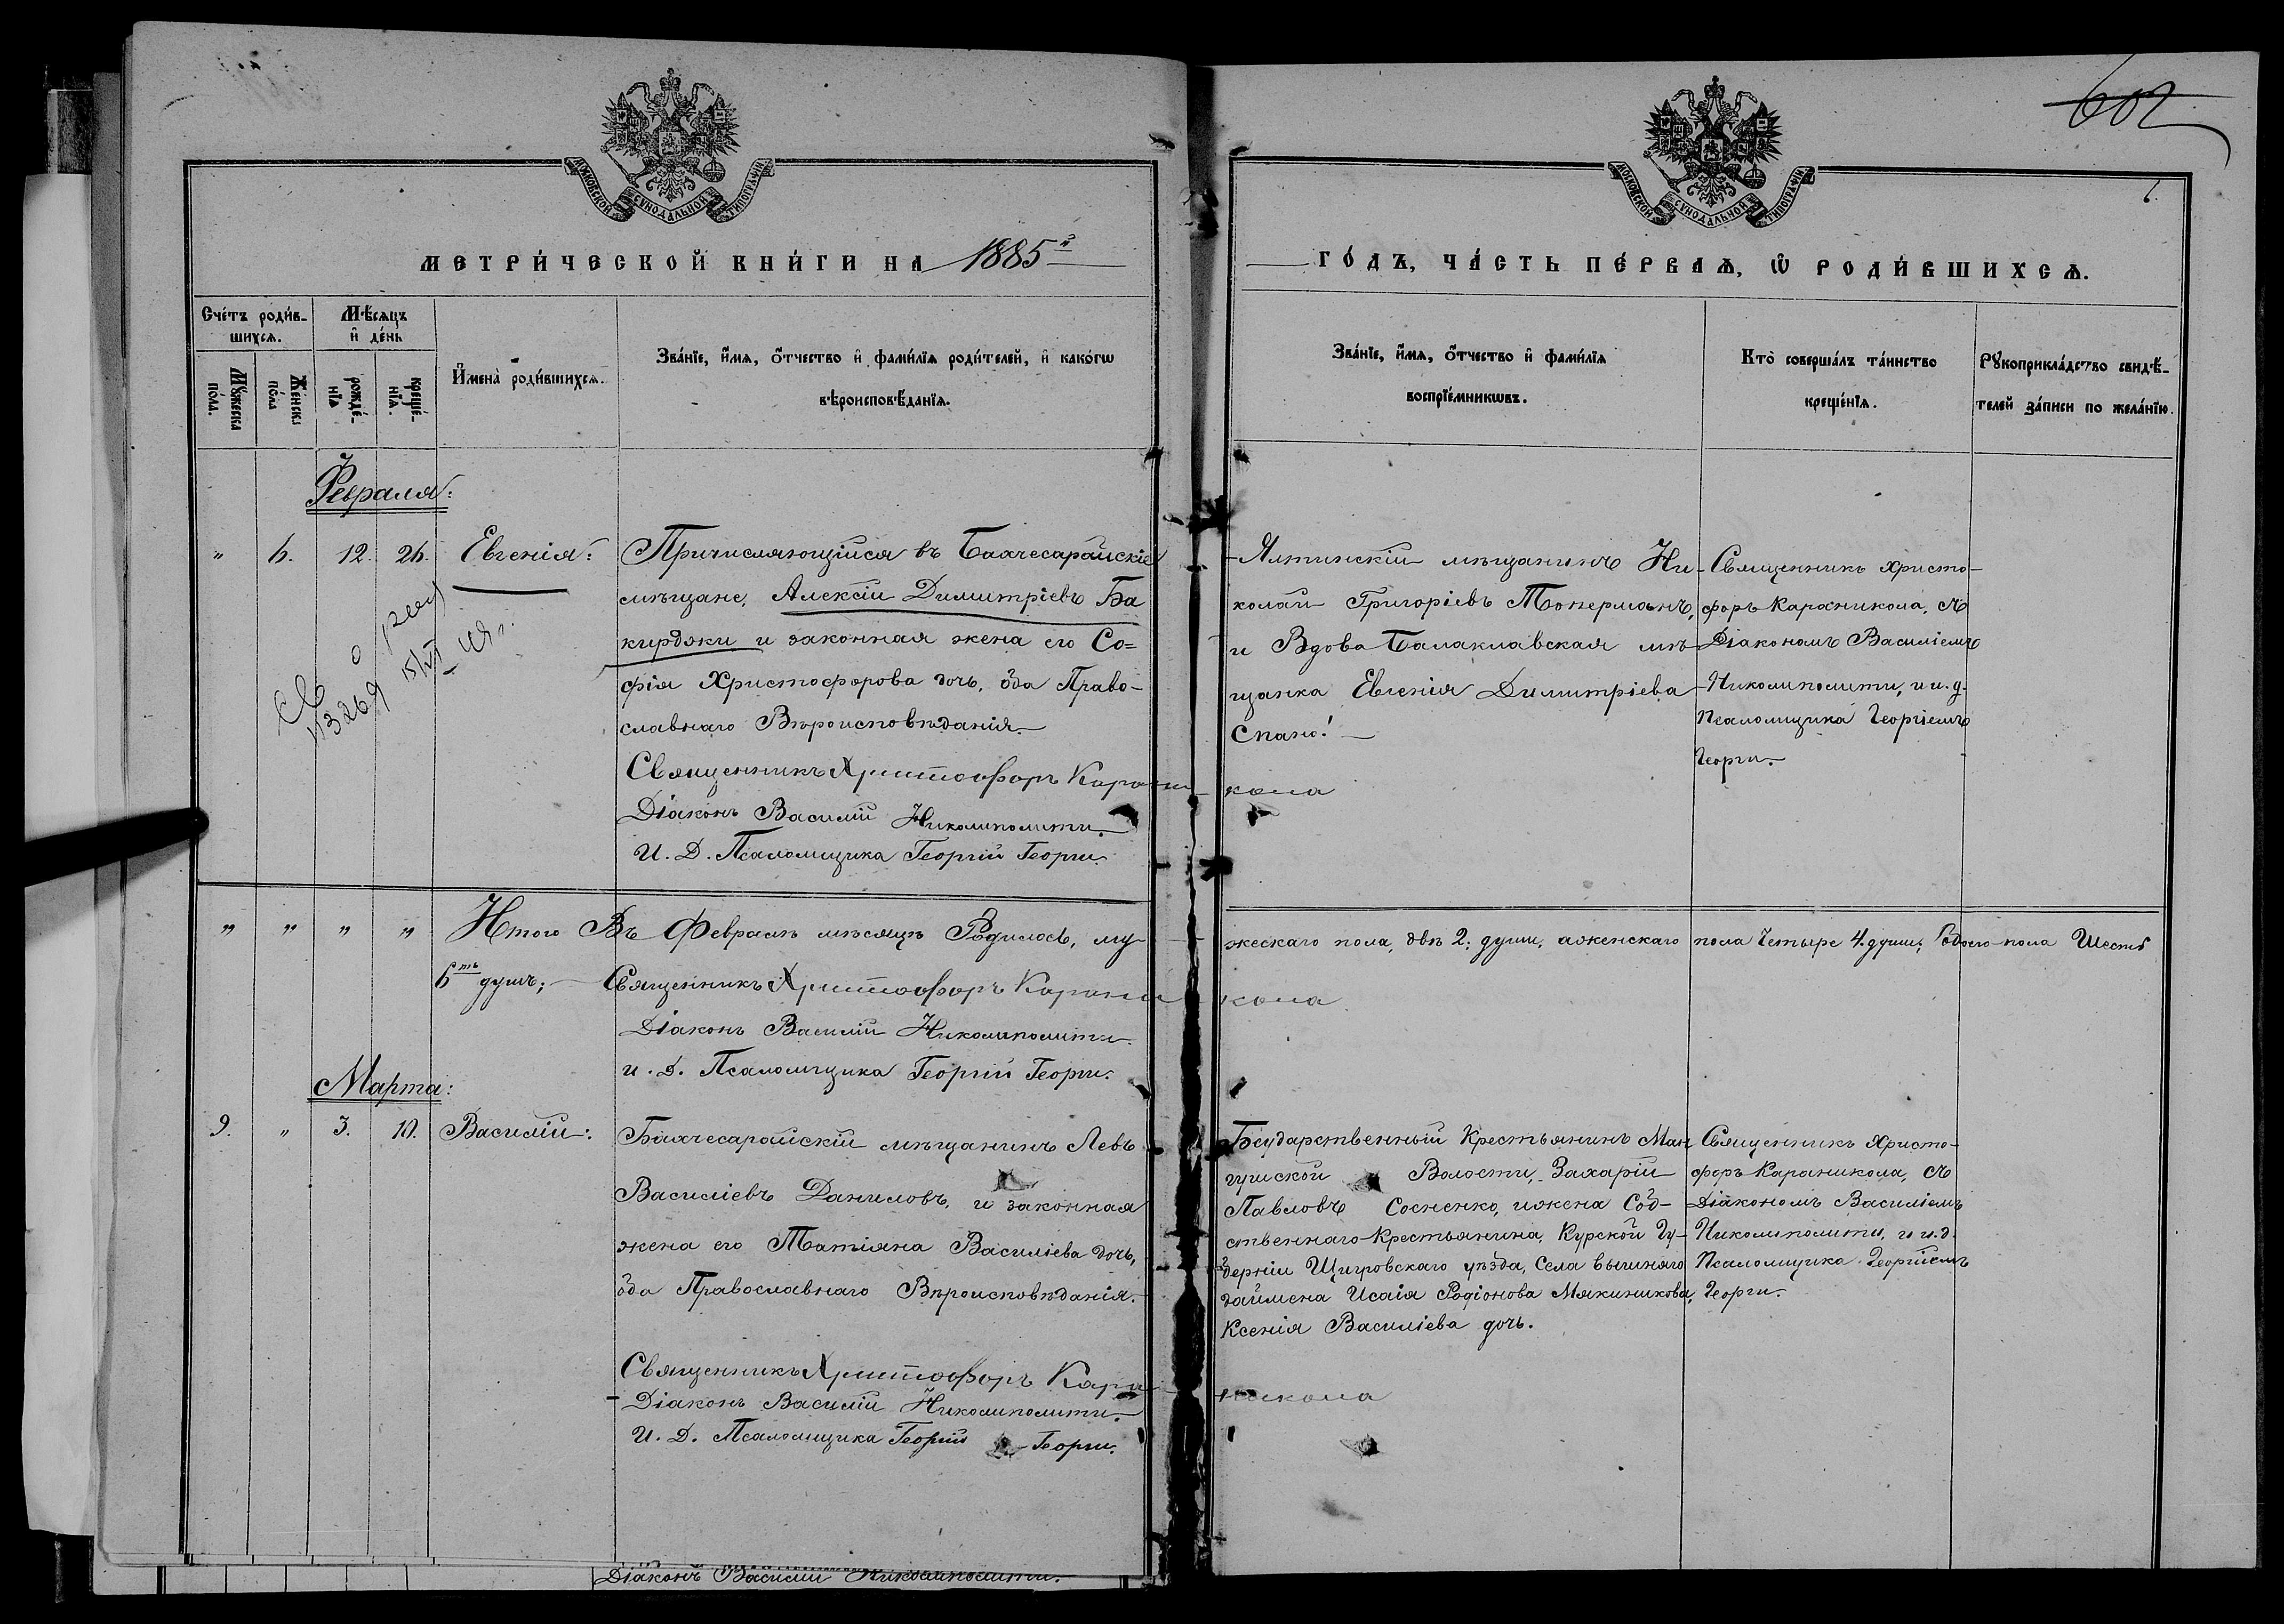 602
6.
МОСКОВСКОЙ СѴНОДАЛЬНОЙ ТИПОГРАФІИ
МОСКОВСКОЙ СѴНОДАЛЬНОЙ ТИПОГРАФІИ
МЕТРИ́ЧЕСКОЙ КНИ́ГИ НА 1885й
ГО́ДЪ, ЧА́СТЬ ПЕ́РВАѦ, Ѡ РОДИ́ВШИХСѦ.
Сче́тъ роди́в-
шихсѧ.
Мѣ́сѧцъ
и҆ де́нь
Мꙋ́жеска
по́ла.
Же́нска
по́ла
рожде́-
нїѧ
креще́-
нїѧ.
И҆мена̀ роди́вшихсѧ.
Зва́нїе, и҆́мѧ, ѻ҆́тчество и҆ фами́лїѧ роди́телей, и҆ како́гѡ
вѣроисповѣ́данїѧ.
Зва́нїе, и҆́мѧ, ѻ҆́тчество и҆ фами́лїѧ
воспрїе́мникѡвъ.
Кто̀ соверша́лъ та́инство
креще́нїѧ.
Рꙋкоприкла́дство свидѣ́-
телей за́писи по жела́нїю.
Февраля:
" 6. 12. 26. Евгенія:
Причисляющійся въ Бахчесарайскіе
мѣщане, Алексій Димитріевъ Ба
кирджи и законная жена его Со=
фія Христофорова дочь, оба Право-
славнаго Вѣроисповѣданія.
Священникъ Христофоръ Карани
кола
Діаконъ Василій Николиполити.
И. Д. Псаломщика Георгій Георги.
Ялтинскій мѣщанинъ Ни-
колай Григоріевъ Топермонъ,
и Вдова Балаклавская мѣ-
щанка Евгенія Димитріева
Спано!
Священникъ Христо-
форъ Караникола, съ
Діакономъ Василіемъ
Николиполити, и и. д.
Псаломщика Георгіемъ
Георги.
13269 15/VI
" " " " Итого Въ Февралѣ мѣсяцѣ Родилось, му-
жескаго пола, двѣ 2: души, а женскаго пола Четыре 4. души; обоего пола Шесть
6ть душъ;
Священникъ Христофоръ Карани
кола
Діаконъ Василій Николиполити.
и. д. Псаломщика Георгій Георги.
Марта:
9. " 3. 10. Василій:
Бахчесарайскій мѣщанинъ Левъ
Василіевъ Даниловъ, и законная
жена его Татіяна Василіева дочь,
оба Православнаго Вѣроисповѣданія.
Священникъ Христофоръ Кара
никола
Діаконъ Василій Николиполити.
И. Д. Псаломщика Георгій Георги.
Государственный Крестьянинъ Ман
гушской Волости, Захарій
Павловъ Сосненко, и жена Соб-
ственнаго Крестьянина, Курской Гу-
берніи Щигровскаго уѣзда, Села Вышняго
даймена Исаія Родіонова Мякинникова,
Ксенія Василіева дочь.
Священникъ Христо-
форъ Караникола, съ
Діакономъ Василіемъ
Николиполити, и и. д.
Псаломщика Георгіемъ
Георги.
Діаконъ Василій Николиполити.